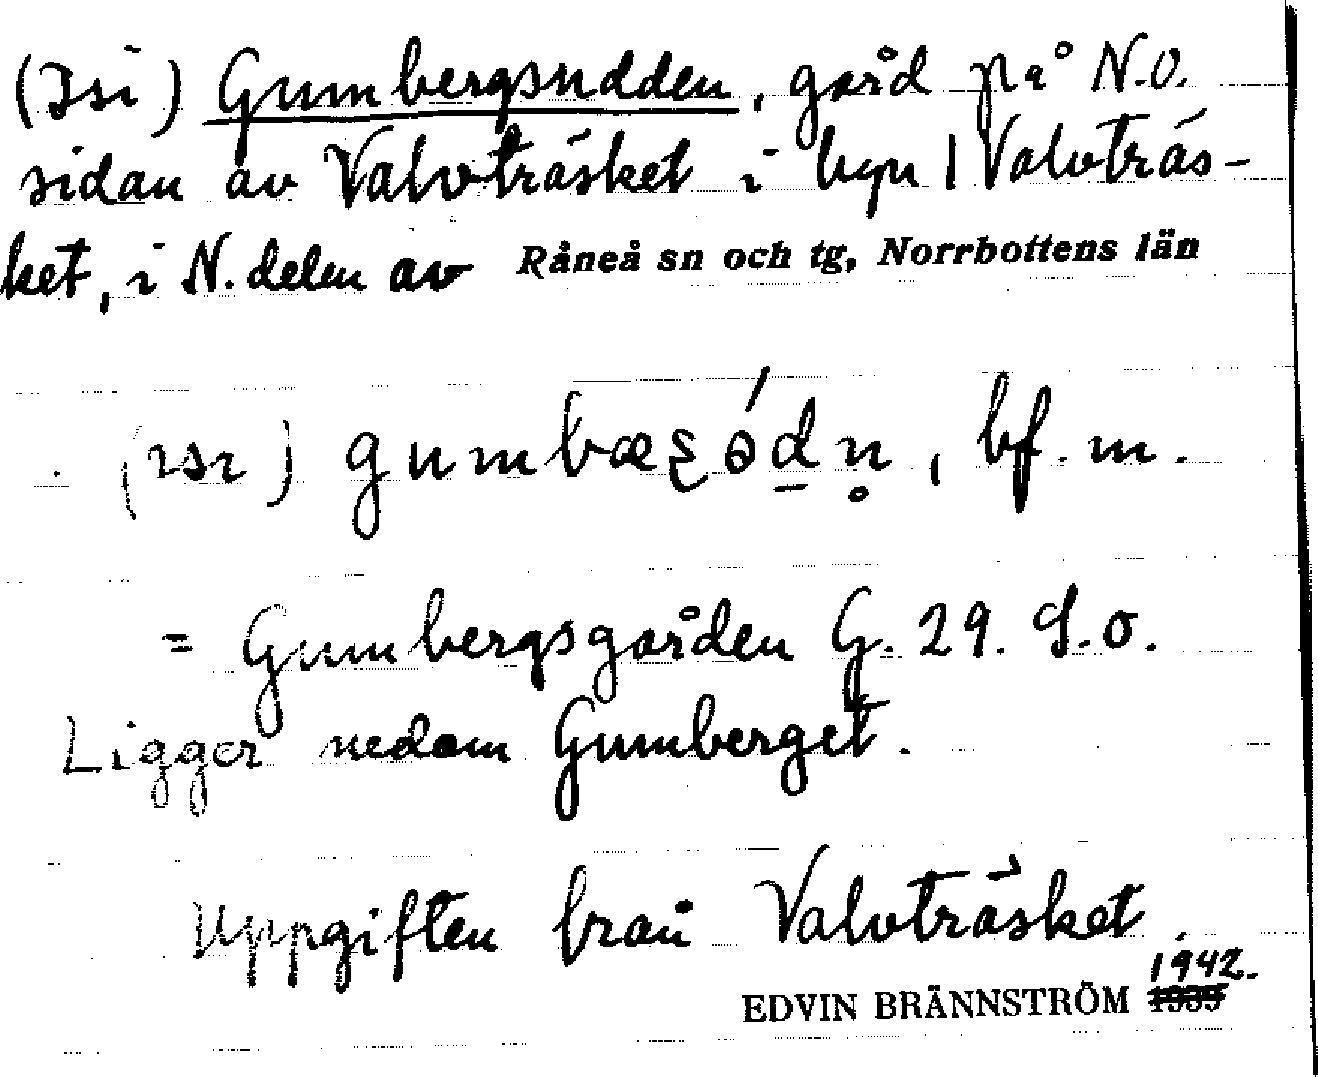 (Isi) Gumbergsudden, gård på N.O.
sidan av Valvträsket i byn | Valvträs-
ket, i N. delen av Råneå sn och tg, Norrbottens län
(ɪsɪ) gumbæʂѳ́d̲n̥, bf. m.
= Gumbergsgården G. 29. d.o.
Ligger nedom Gumberget.
Uppgiften från Valvträsket.
EDVIN BRÄNNSTRÖM 1939 1942.